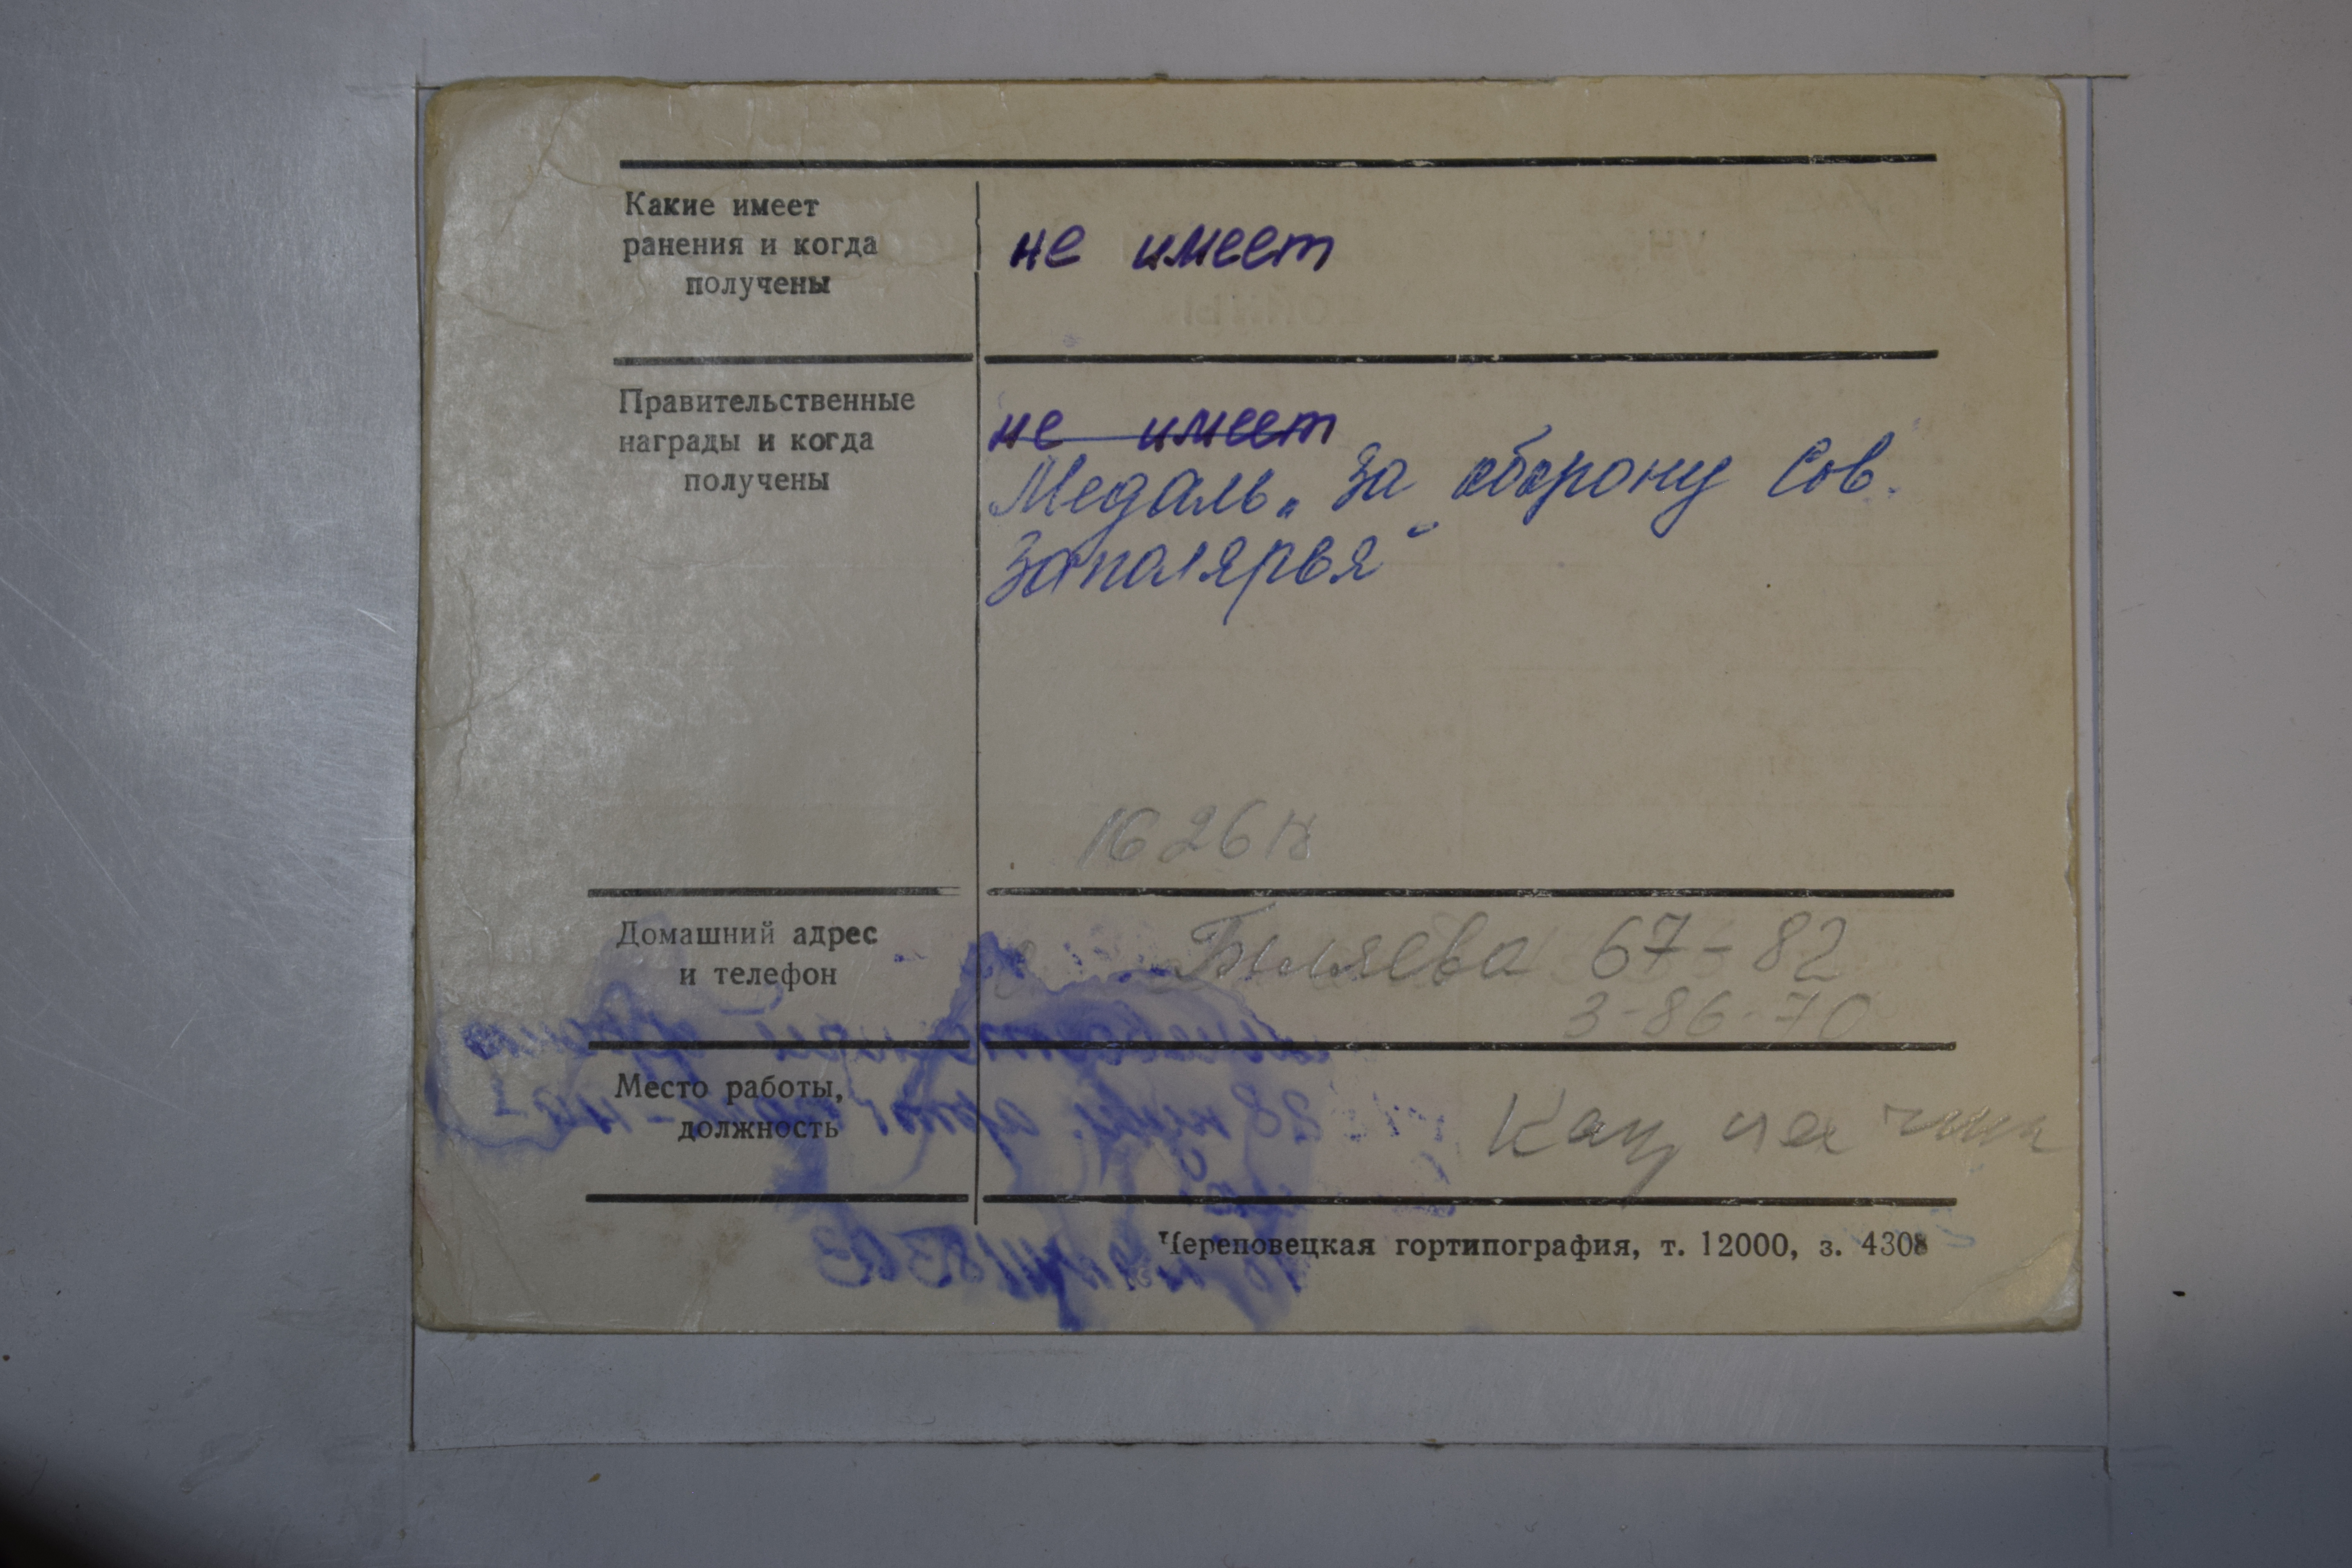 Какие имеет
ранения и когда
получены
не имеет
Правительственные
награды и когда
получены
не имеет
Медаль „За оборону Сов.
Заполярья“
Домашний адрес
и телефон
67-82
3-86-70
Место работы,
должность
Череповецкая гортипография, т. 12000, з. 4308